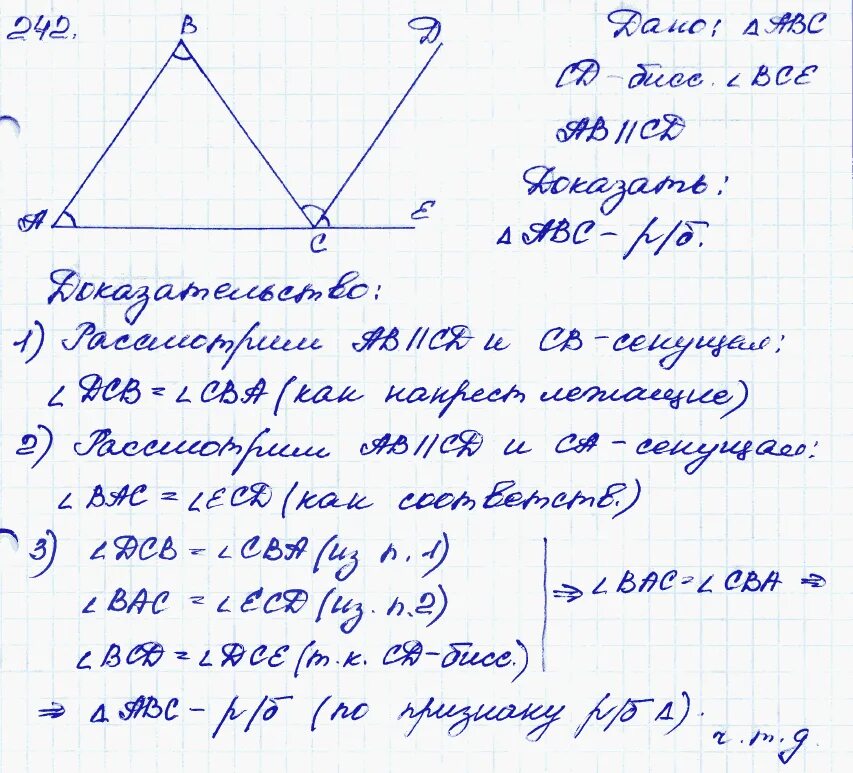 242.
B
D
A
C
E
Дано: △ABC
CD - бисс. ∠BCE
AB || CD
Доказать:
△ABC - р/б.
Доказательство:
1) Рассмотрим AB || CD и CB - секущая:
∠DCB = ∠CBA (как накрест лежащие)
2) Рассмотрим AB || CD и CA - секущая:
∠BAC = ∠ECD (как соответств.)
3) ∠DCB = ∠CBA (из п. 1)
∠BAC = ∠ECD (из. п. 2)
∠BCD = ∠DCE (т.к. CD - бисс.)
⇒ ∠BAC = ∠CBA ⇒
⇒ △ABC - р/б (по признаку р/б △).
ч.т.д.